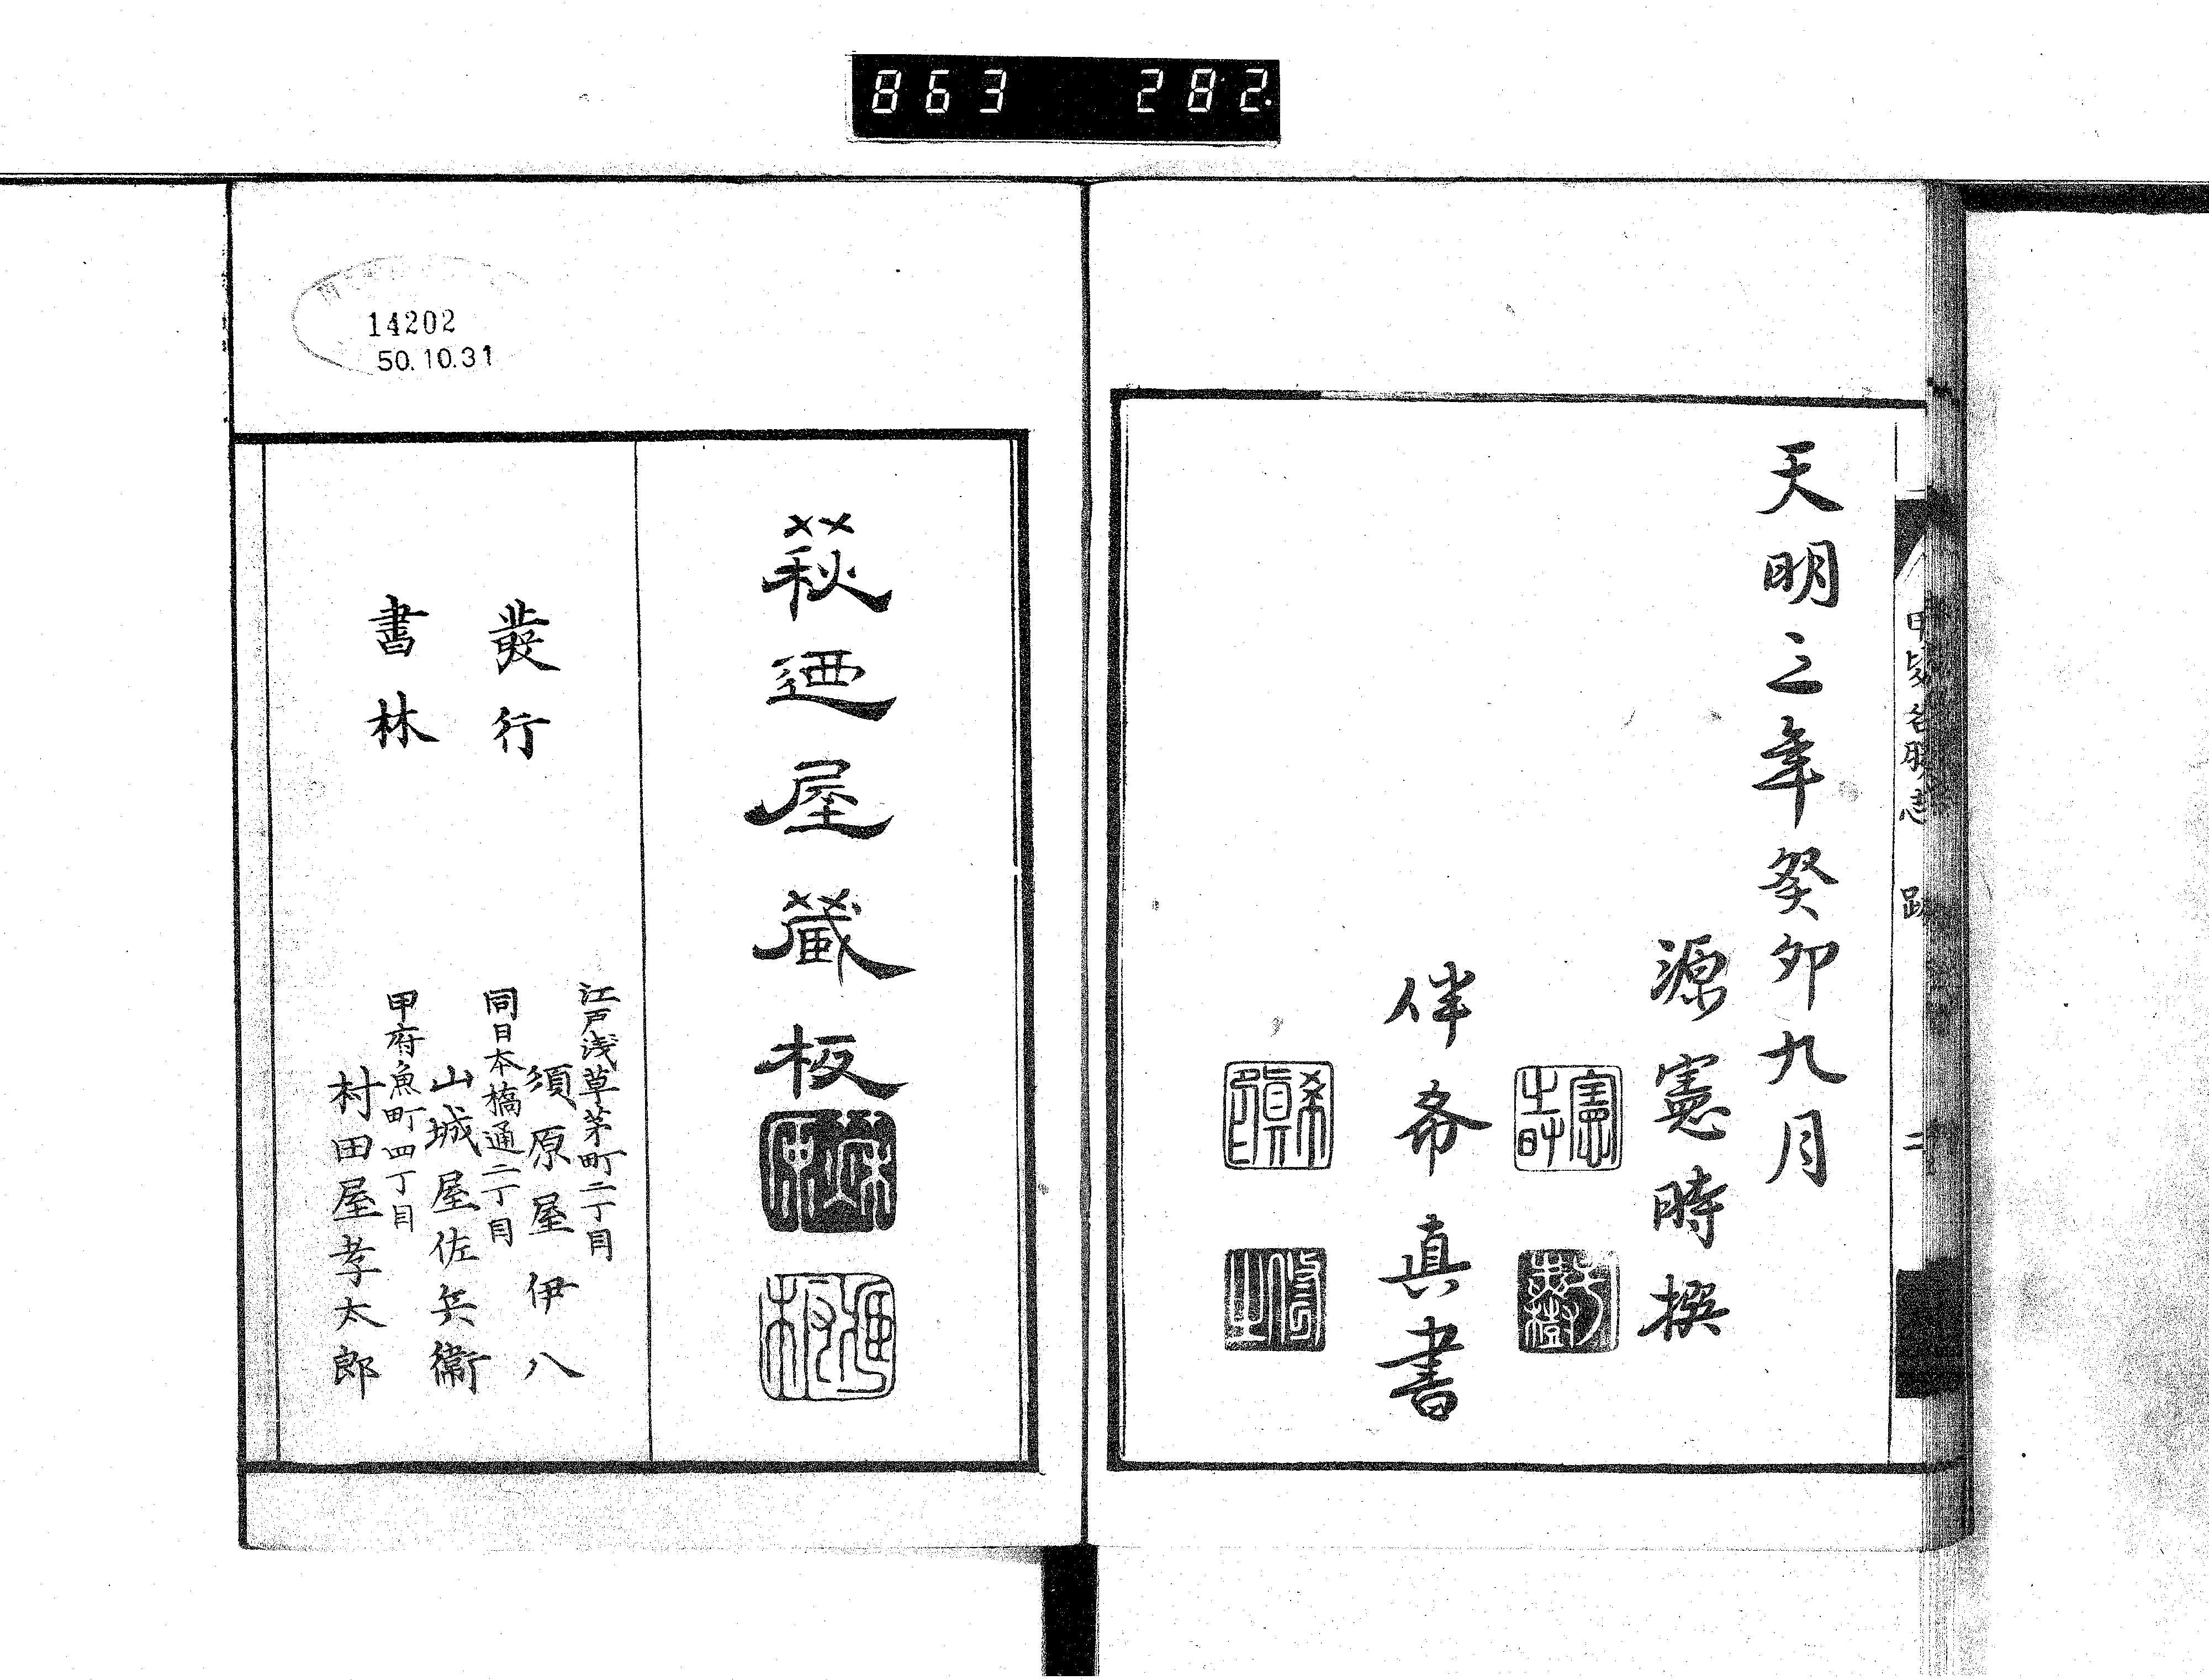 863 282
天明三年癸卯九月
源憲時撰
伴希真書
跋
二
14202
50.10.31
萩迺屋蔵板
發行
書林
江戸浅草茅町二丁目
須原屋伊八
同日本橋通二丁目
山城屋佐兵衛
甲府魚町四丁目
村田屋孝太郎